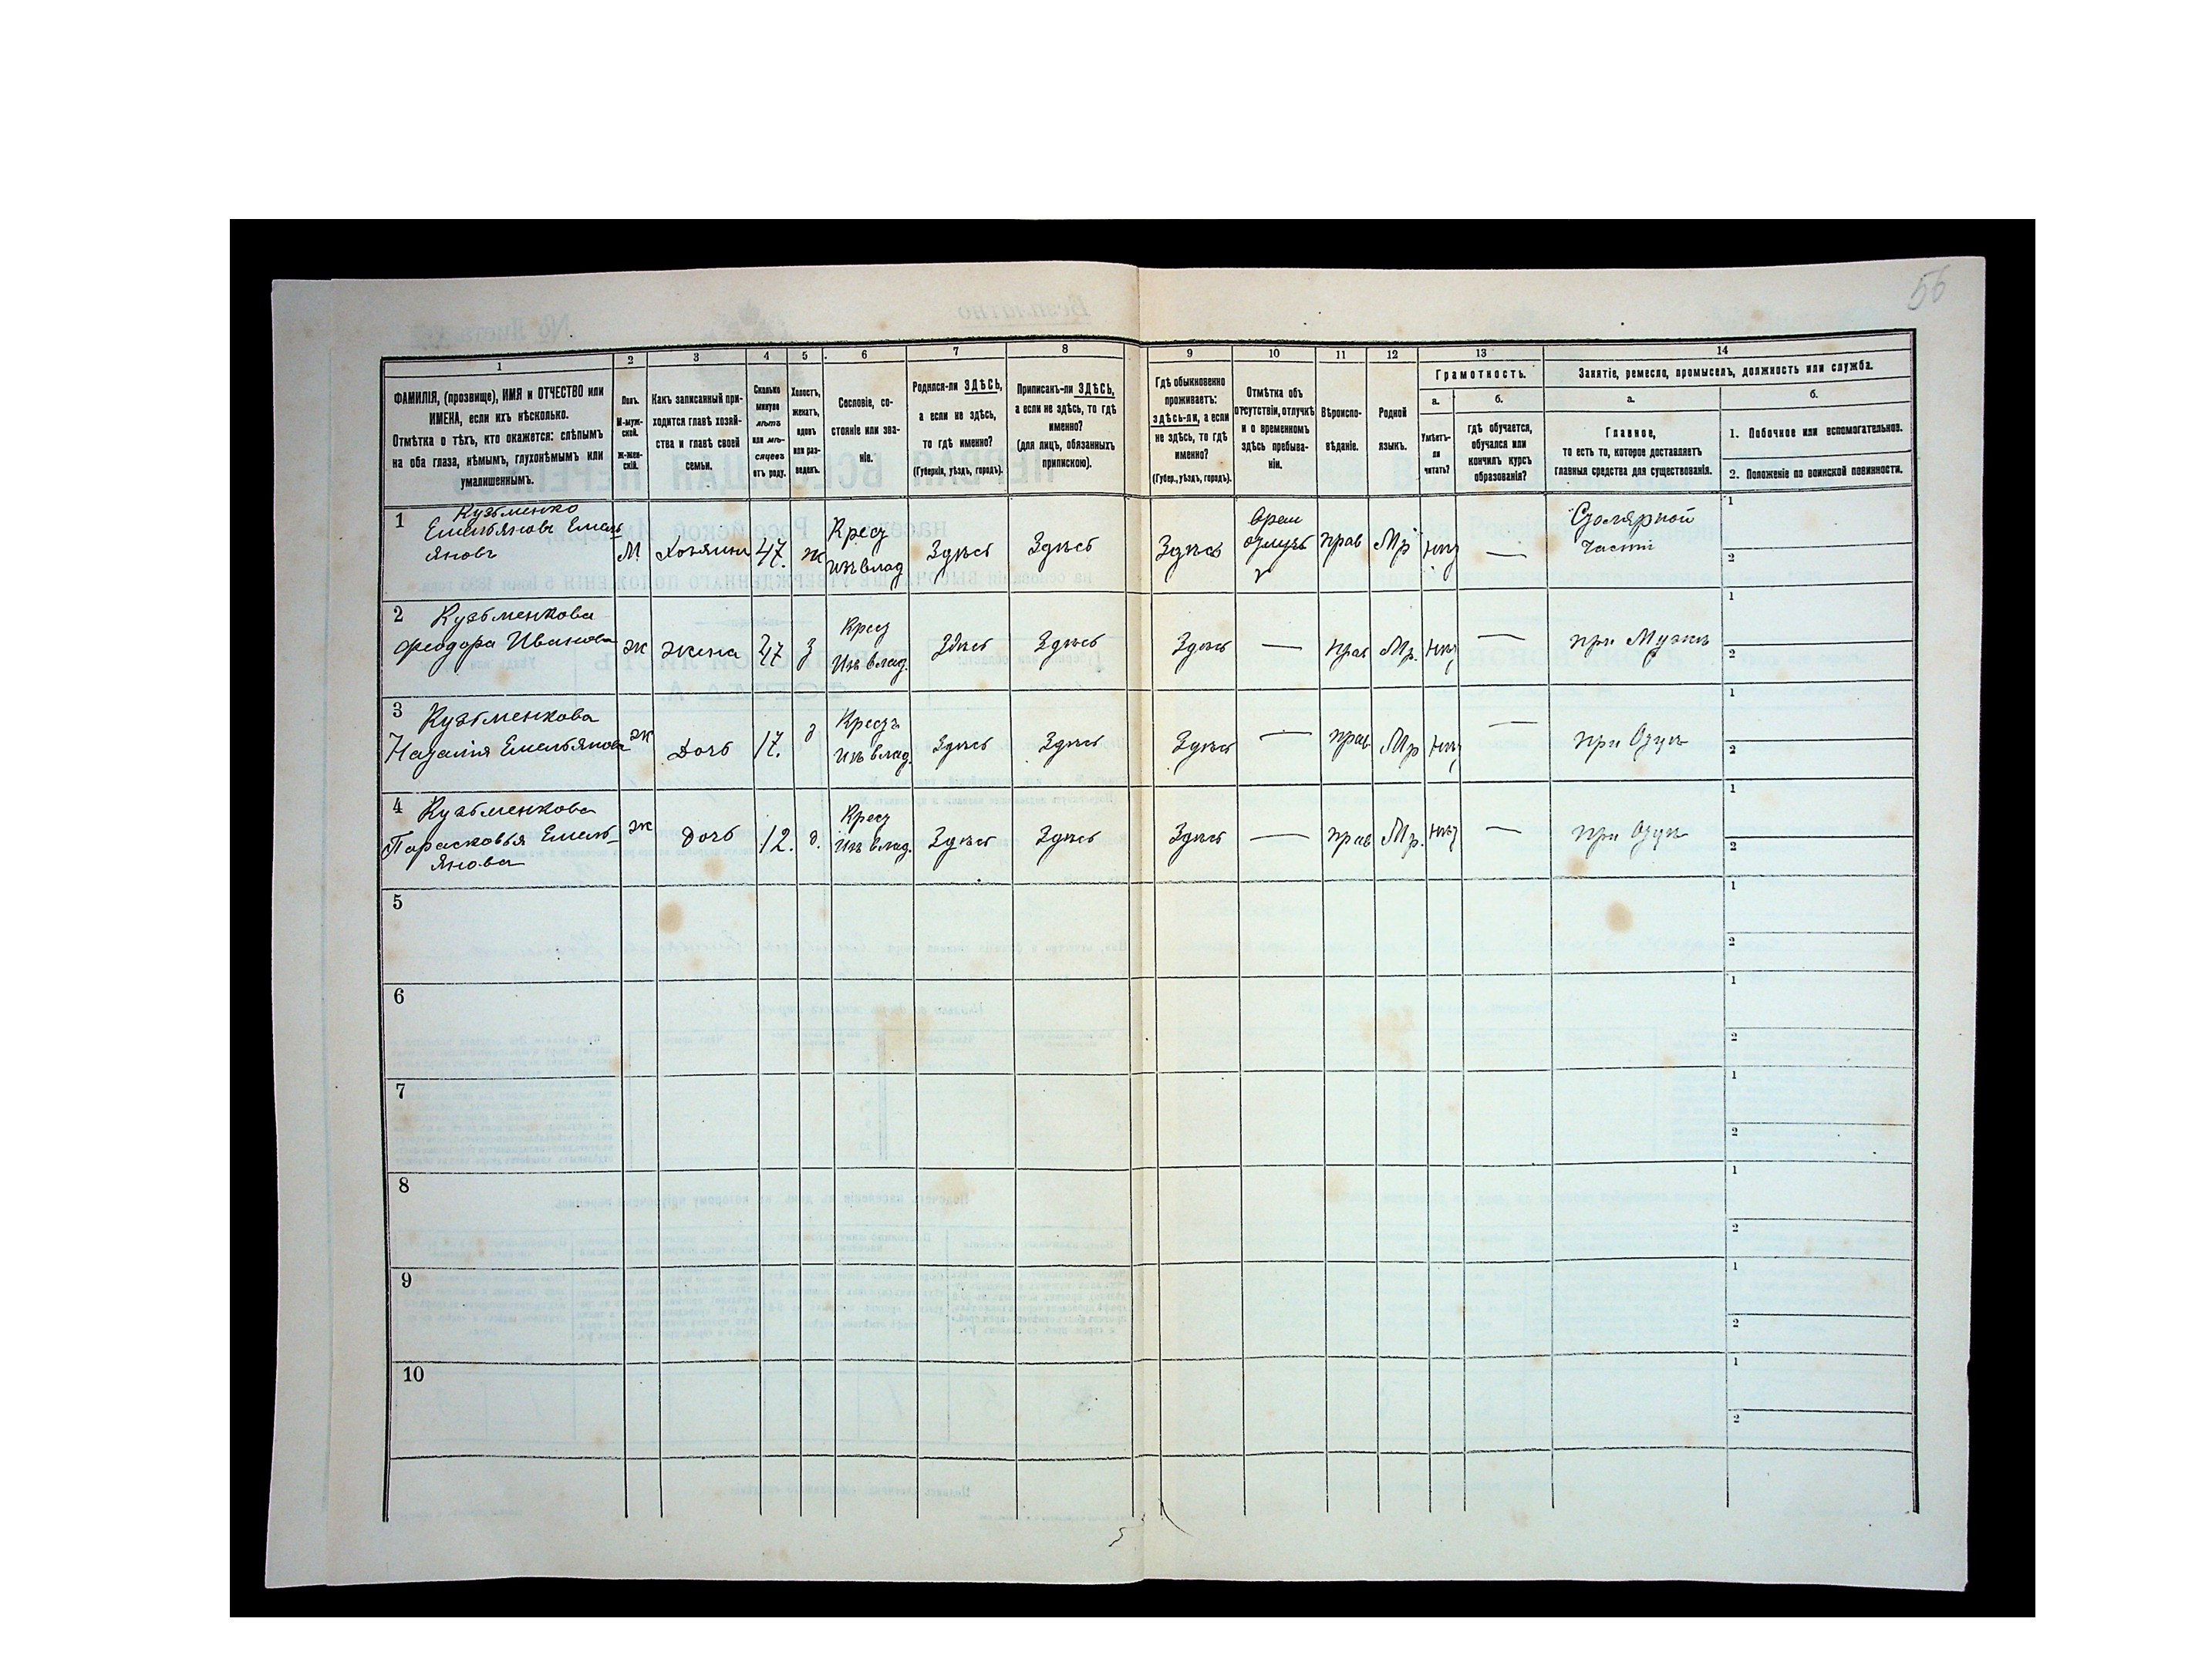 56
1
2
3
4
5
6
7
8
9
10
11
12
13
14
ФАМИЛІЯ, (прозвище), ИМЯ и ОТЧЕСТВО или
ИМЕНА, если ихъ нѣсколько.
Отмѣтка о тѣхъ, кто окажется: слѣпымъ
на оба глаза, нѣмымъ, глухонѣмымъ или
умалишеннымъ.
Полъ.
М-муж-
ской.
Ж-жен-
скій.
Какъ записанный при-
ходится главѣ хозяй-
ства и главѣ своей
семьи.
Сколько
минуло
лѣтъ
или мѣ-
сяцевъ
отъ роду.
Холостъ,
женатъ,
вдовъ
или раз-
веденъ.
Сословіе, со-
стояніе или зва-
ніе.
Родился-ли ЗДѢСЬ,
а если не здѣсь,
то гдѣ именно?
(Губернія, уѣздъ, городъ).
Приписанъ-ли ЗДѢСЬ,
а если не здѣсь, то гдѣ
именно?
(для лицъ, обязанныхъ
припискою).
Гдѣ обыкновенно
проживаетъ:
здѣсь-ли, а если
не здѣсь, то гдѣ
именно?
(Губер., уѣздъ, городъ).
Отмѣтка объ
отсутствіи, отлучкѣ
и о временномъ
здѣсь пребыва-
ніи.
Вѣроиспо-
вѣданіе.
Родной
языкъ.
Грамотность.
а.
Умѣетъ-
ли
читать?
б.
гдѣ обучается,
обучался или
кончилъ курсъ
образованія?
Занятіе, ремесло, промыселъ, должность или служба.
а.
Главное,
то есть то, которое доставляетъ
главныя средства для существованія.
б.
1. Побочное или вспомогательное.
2. Положеніе по воинской повинности.
1 Кузьменко
Емельяновъ Емель
яновъ
М. Хозяинъ 47. ж Крест
изъ влад Здѣсь Здѣсь Здѣсь Врем
отлуч прав Мр нѣт — Столярной
части
1
2
2 Кузьменкова
Феодора Иванова ж жена 47 з Крест
изъ влад. Здѣсь Здѣсь Здѣсь — прав Мр. нѣт — при Мужѣ
1
2
3 Кузьменкова
Наталія Емельянова ж Дочь 17. д Крестъ
изъ влад. Здѣсь Здѣсь Здѣсь — прав Мр нѣт — при Отцѣ
1
2
4 Кузьменкова
Парасковья Емель
янова ж дочь 12. д. Крест
изъ влад. Здѣсь Здѣсь Здѣсь — прав Мр. нѣт — при Отцѣ
1
2
5
1
2
6
1
2
7
1
2
8
1
2
9
1
2
10
1
2